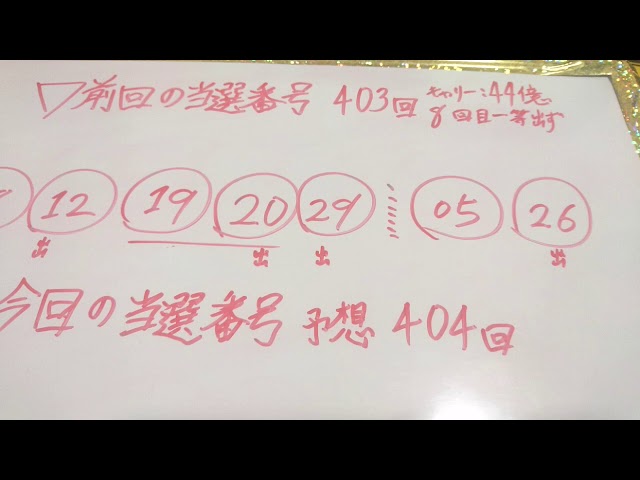 ▽前回の当選番号 403回 キャリー:44億
8回目一等出ず
12 19 20 29 05 26
出 出 出 出
今回の当選番号 予想 404回